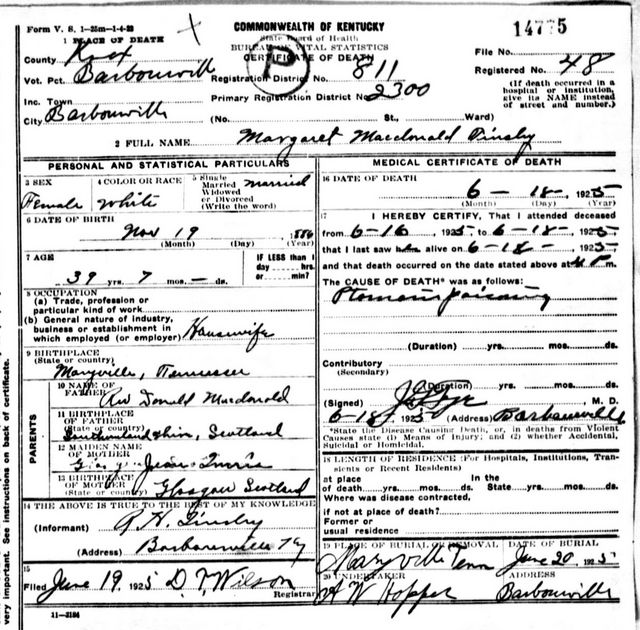 Form V. S. 1—25m—1-4-23
COMMONWEALTH OF KENTUCKY
14775
1 PLACE OF DEATH
State Board of Health
BUREAU OF VITAL STATISTICS
CERTIFICATE OF DEATH
P
County Knox
File No.
Vot. Pct. Barbourville
Registration District No. 811
Registered No. 48
Inc. Town
Primary Registration District No. 2300
(If death occurred in a
hospital or institution,
give its NAME instead
of street and number.)
City Barbourville
(No. St., Ward)
2 FULL NAME Margaret Macdonald Tinsley
PERSONAL AND STATISTICAL PARTICULARS
3 SEX
Female
4 COLOR OR RACE
White
5 Single
Married
Widowed
or Divorced
(Write the word)
married
6 DATE OF BIRTH
Nov 19 1886
(Month) (Day) (Year)
7 AGE
39 yrs. 7 mos. — ds.
IF LESS than 1
day hrs.
or min?
8 OCCUPATION
(a) Trade, profession or
particular kind of work
(b) General nature of industry,
business or establishment in
which employed (or employer) Housewife
9 BIRTHPLACE
(State or country)
Maryville, Tennessee
PARENTS
10 NAME OF
FATHER
Rev Donald Macdonald
11 BIRTHPLACE
OF FATHER
(State or country)
Scotland
12 MAIDEN NAME
OF MOTHER
13 BIRTHPLACE
OF MOTHER
(State or country) Glasgow Scotland
14 THE ABOVE IS TRUE TO THE BEST OF MY KNOWLEDGE
(Informant) Tinsley
(Address) Barbourville Ky
15
Filed June 19, 1925 D. T. Wilson
Registrar
11—3184
MEDICAL CERTIFICATE OF DEATH
16 DATE OF DEATH
6 — 18 — 1925
(Month) (Day) (Year)
17 I HEREBY CERTIFY, That I attended deceased
from 6-16, 1925 to 6-18-, 1925
that I last saw alive on 6-18-, 1925
and that death occurred on the date stated above at 4 P. m.
The CAUSE OF DEATH* was as follows:
Ptomain poisoning
(Duration) yrs. mos. ds.
Contributory
(Secondary)
(Duration) yrs. mos. ds.
(Signed) M. D.
6-18, 1925 (Address) Barbourville
*State the Disease Causing Death, or, in deaths from Violent
Causes state (1) Means of Injury; and (2) whether Accidental,
Suicidal or Homicidal.
18 LENGTH OF RESIDENCE (For Hospitals, Institutions, Tran-
sients or Recent Residents)
at place
of death yrs. mos. ds.
In the
State yrs. mos. ds.
Where was disease contracted,
if not at place of death?
Former or
usual residence
19 PLACE OF BURIAL OR REMOVAL
Maryville Tenn
DATE OF BURIAL
June 20, 1925
20 UNDERTAKER
A W Hopper
ADDRESS
Barbourville
very important. See instructions on back of certificate.